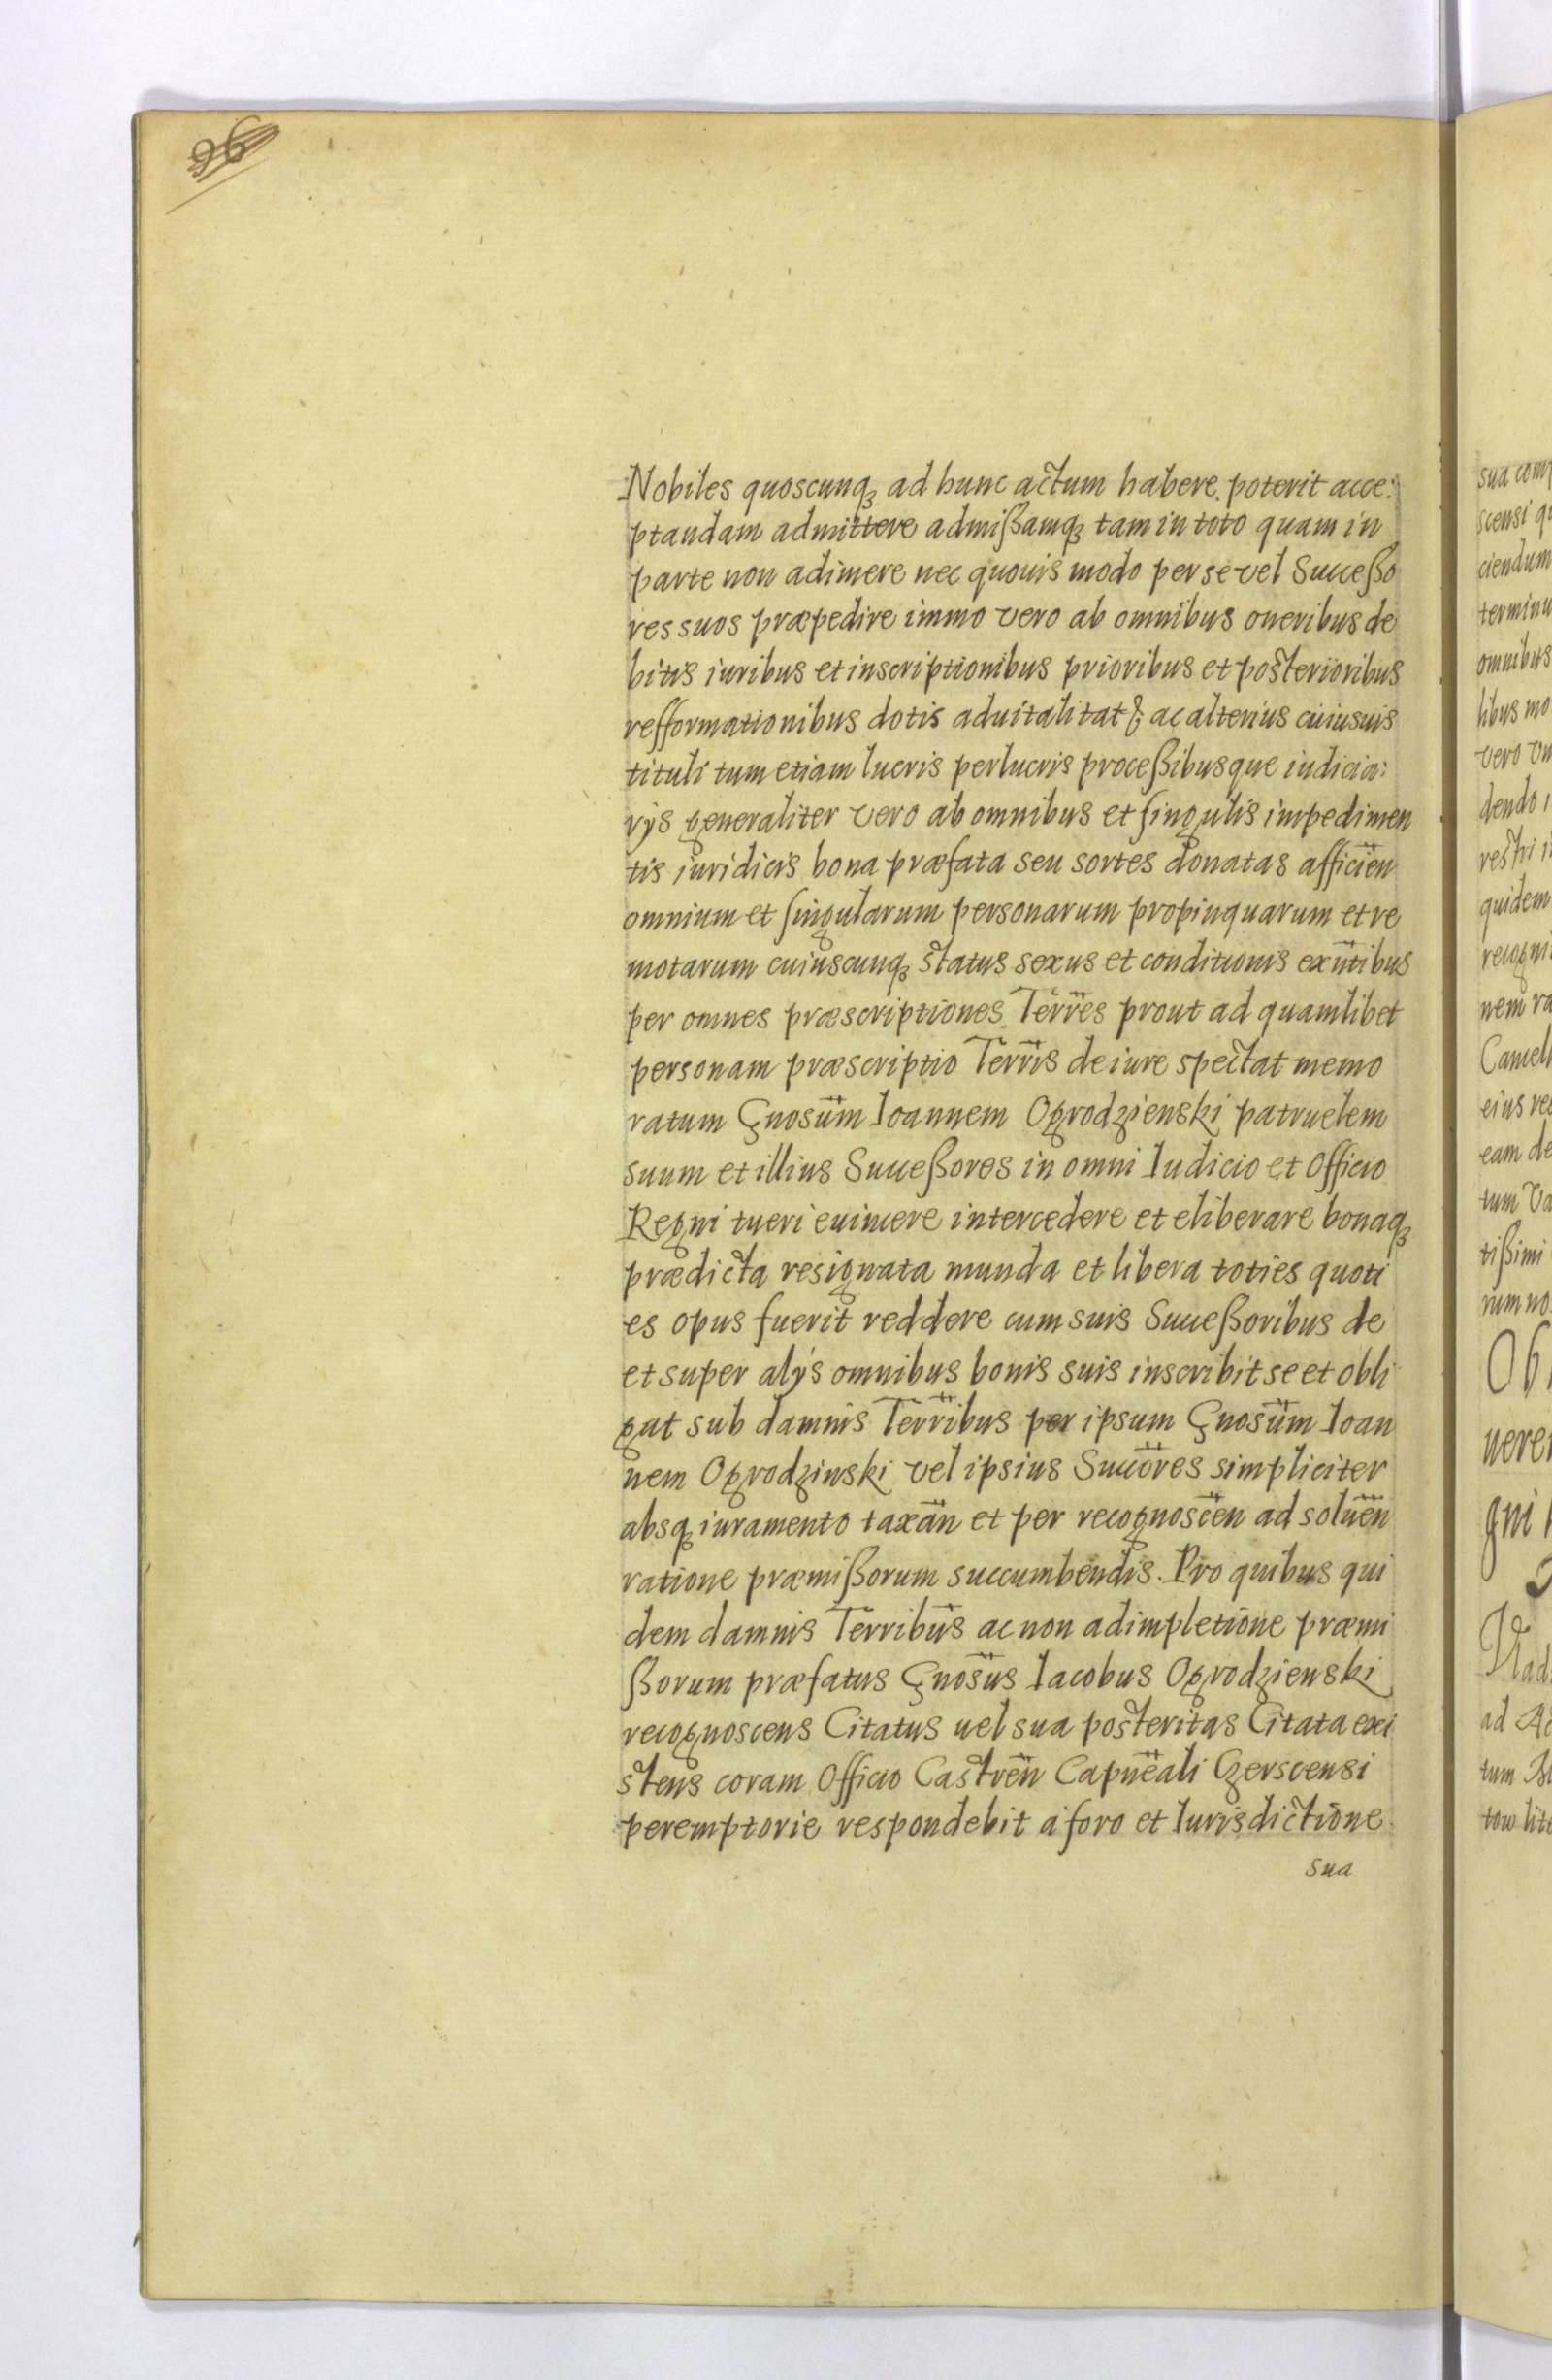 96
Nobiles quoscunqꝫ ad hunc actum habere poterit acce:
ptandam admittere admißamqꝫ tam in toto quam in
parte non adimere nec quouis modo per se vel Succeßo
res suos præpedire immo vero ab omnibus oneribus de
bitis iuribus et inscriptionibus prioribus et posterioribus
refformationibus dotis aduitalitat& ac alterius cuiusuis
tituli tum etiam lucris perlucris proceßibusque iudicia:
rÿs generaliter vero ab omnibus et singulis impedimen
tis iuridicis bona præfata seu sortes donatas afficien̈
omnium et singularum personarum propinquarum et re
motarum cuiuscunqꝫ status sexus et conditionis exn̄tibus
per omnes præscriptiones Terr̄es prout ad quamlibet
personam præscriptio Terr̄is de iure spectat memo
ratum Gnosūm Ioannem Ogrodzienski patruelem
suum et illius Succeßores in omni Iudicio et Officio
Regni tueri euincere intercedere et eliberare bonaqꝫ
prædicta resignata munda et libera toties quoti
es opus fuerit reddere cum suis Succeßoribus de
et super alÿs omnibus bonis suis inscribit se et obli
gat sub damnis Terr̄ibus per ipsum Gnosūm Ioan
nem Ogrodzinski vel ipsius Succōres simpliciter
absqꝫ iuramento taxān et per recognoscēn ad soluēn
ratione præmißorum succumbendis. Pro quibus qui
dem damnis Terribūs ac non adimpletione præmi
ßorum præfatus Gnosūs Iacobus Ogrodzienski
recognoscens Citatus uel sua posteritas Citata exi
stens coram Officio Castrēn Capnēali Czerscensi
peremptorie respondebit a foro et Iurisdictione
sua